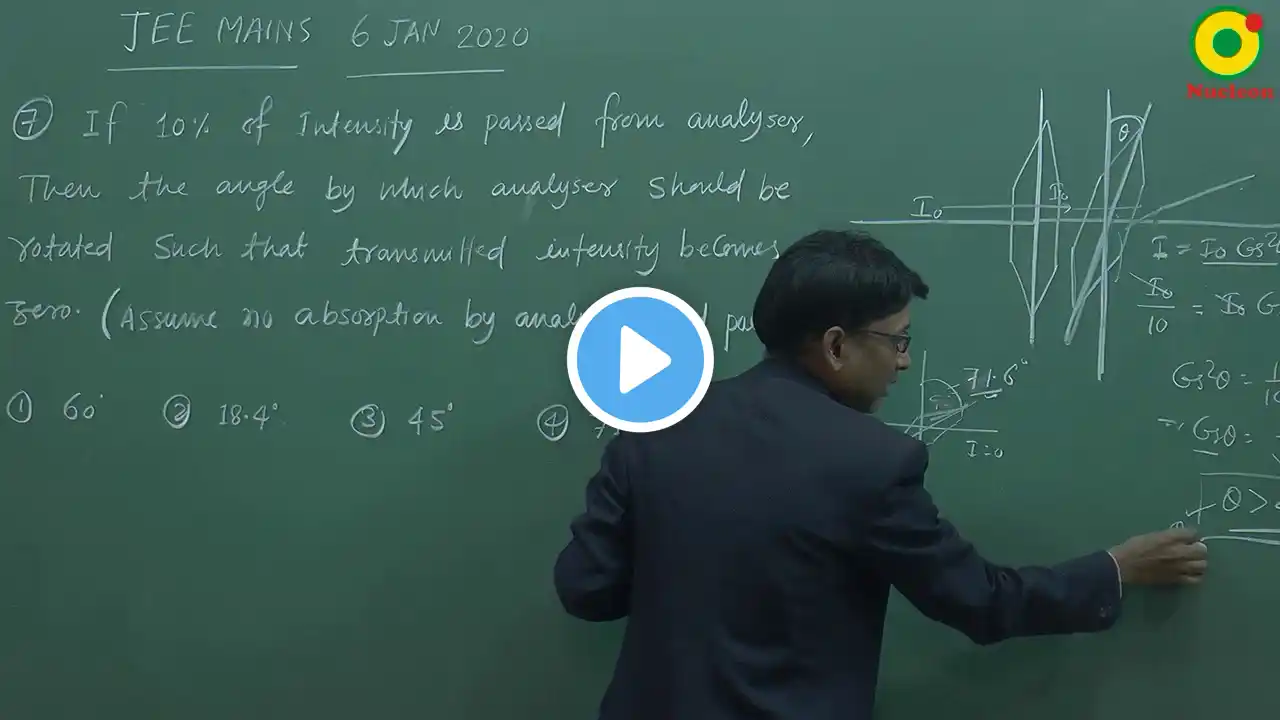 JEE MAINS 6 JAN 2020
Nucleon
⑦ If 10% of Intensity is passed from analyser,
Then the angle by which analyser should be
rotated such that transmitted intensity becomes
zero. (Assume no absorption by
① 60° ② 18.4° ③ 45° ④
θ
I₀ I₀
I = I₀ Cos²
I₀/10 = I₀
Cos²θ =
Cosθ =
θ >
71.6°
I=0